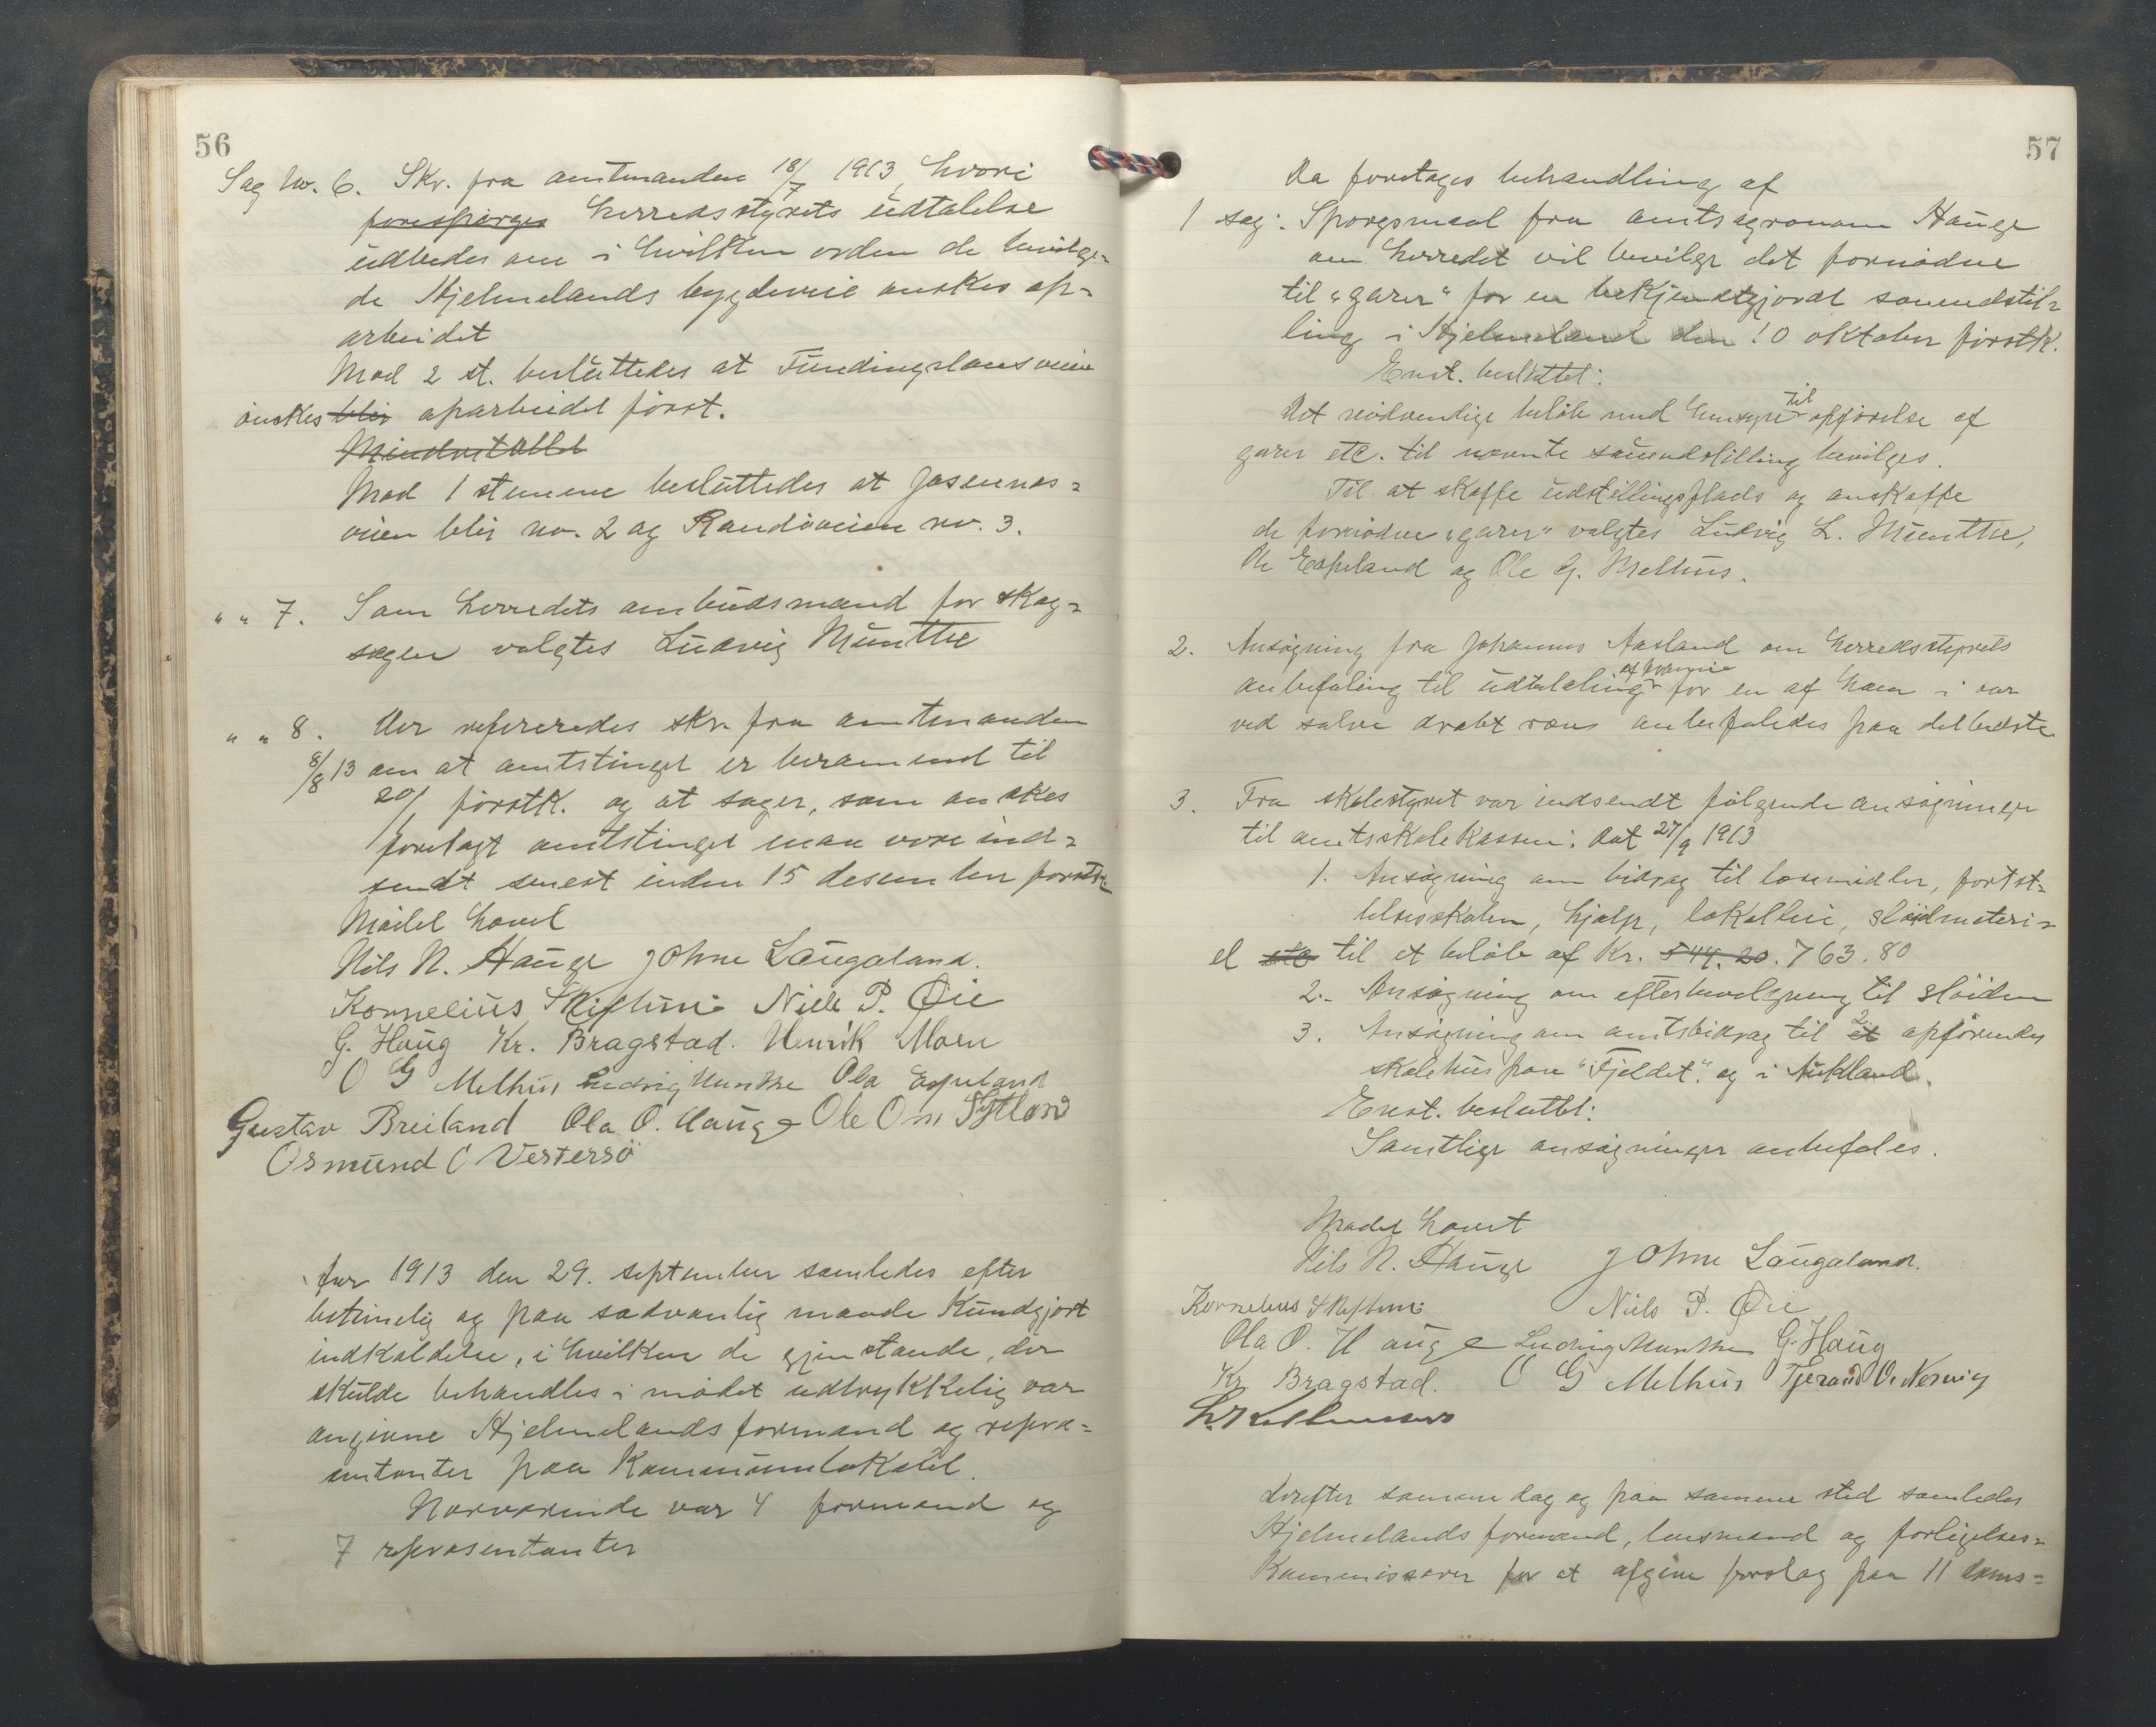 56
Sag No. 6. Skr. fra amtmanden 18/7 1913, hvori
forespørges herredsstyrets udtalelse
udbedes om i hvilken orden de bevilge-
de Hjelmelands bygdeveie ønskes op-
arbeidet
Mod 2 st. besluttedes at Fundingslansveien
ønskes blir oparbeidet først.
Mindretallet
Mod 1 stemme besluttedes at Jøsennes-
veien blir no. 2 og Randøveien no. 3.
" " 7. Som herredets ombudsmand for skog-
sagen valgtes Ludvig Munthe
" " 8. Der refereredes skr. fra amtmanden
8/8 13 om at amtstinget er berammet til
20/1 førstk. og at sager, som ønskes
forelagt amtstinget maa være ind-
sendt senest inden 15 desember førstk.
Mødet hævet
Nils N. Hauge John Laugaland.
Kornelius Skiftun Niels P. Øie
G. Haug Kr. Bragstad. Henrik Moen
O G Melhus Ludvig Munthe Ola Espeland
Gustav Breiland Ola O. Hauge Ole Om
Osmund O Vestersø
Aar 1913 den 29. september samledes efter
betimelig og paa sædvanlig maade kundgjort
indkaldelse, i hvilken de gjenstande, der
skulde behandles i mødet udtrykkelig var
angivne Hjelmelands formænd og repræ-
sentanter paa Kommunelokalet.
Nærværende var 4 formænd og
7 repræsentanter
57
Da foretages behandling af
1 sag: Spørgsmaal fra amtsagronom Hauge
om herredet vil bevilge det fornødne
til "garer" for en bekjendtgjordt saueudstil-
ling i Hjelmeland den 10 oktober førstk.
Enst. besluttet:
Det nødvendige beløb med hensyn til opførelse af
garer etc. til nævnte saueudstilling bevilges.
Til at skaffe udstillingsplads og anskaffe
de fornødne "garer" valgtes Ludvig L. Munthe,
Ole Espeland og Ole G. Melhus.
2. Ansøgning fra Johannes Aasland om herredsstyrets
anbefaling til udbetaling af præmie for en af ham i var
ved salve dræbt ræv anbefaledes paa det bedste.
3. Fra skolestyret var indsendt følgende ansøgninger
til amtsskolekassen: Dat 27/9 1913
1. Ansøgning om bidrag til læremidler, fortsæt-
telsesskolen, hjælp, lokalleie, sløidmateri-
el etc til et beløb af Kr. 544.20. 763.80
2. Ansøgning om efterbevilgning til sløiden
3. Ansøgning om amtsbidrag til et 2 opførendes
skolehus paa "Fjeldet". og i Aukland.
Enst. besluttet:
Samtlige ansøgninger anbefales.
Mødet hævet
Nils N. Hauge John Laugaland.
Kornelius Skiftun Niels P. Øie
Ola O. Hauge Ludvig Munthe G. Haug
Kr. Bragstad. O G Melhus Tjerand O. Nesvig
Derefter samme dag og paa samme sted samledes
Hjelmelands formænd, lensmand og forligelses-
kommissærer for at afgive forslag paa 11 doms-